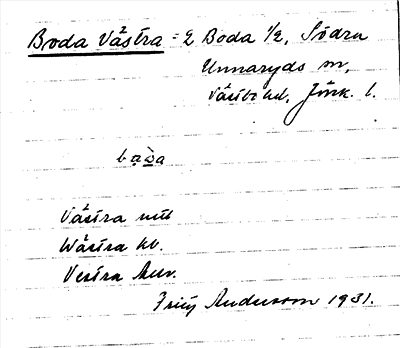 Boda Västra = 2 Boda 1/2, Södra
Unnaryds sn,
Västbo hd, Jönk. l.
Västra
Wästra kv.
Vestra
Andersson 1931.